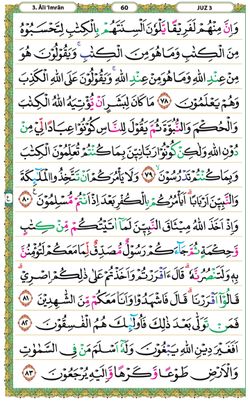 3. Âli 'Imrân 60 JUZ 3
وَاِنَّ مِنْهُمْ لَفَرِيْقًا يَّلْوٗنَ اَلْسِنَتَهُمْ بِالْكِتٰبِ لِتَحْسَبُوْهُ
مِنَ الْكِتٰبِ وَمَا هُوَ مِنَ الْكِتٰبِ ۚ وَيَقُوْلُوْنَ هُوَ
مِنْ عِنْدِ اللّٰهِ وَمَا هُوَ مِنْ عِنْدِ اللّٰهِ ۚ وَيَقُوْلُوْنَ عَلَى اللّٰهِ الْكَذِبَ
وَهُمْ يَعْلَمُوْنَ ﴿٧٨﴾ مَا كَانَ لِبَشَرٍ اَنْ يُّؤْتِيَهُ اللّٰهُ الْكِتٰبَ
وَالْحُكْمَ وَالنُّبُوَّةَ ثُمَّ يَقُوْلَ لِلنَّاسِ كُوْنُوْا عِبَادًا لِّيْ مِنْ
دُوْنِ اللّٰهِ وَلٰكِنْ كُوْنُوْا رَبّٰنِيّٖنَ بِمَا كُنْتُمْ تُعَلِّمُوْنَ الْكِتٰبَ
وَبِمَا كُنْتُمْ تَدْرُسُوْنَ ﴿٧٩﴾ وَلَا يَأْمُرَكُمْ اَنْ تَتَّخِذُوا الْمَلٰٓئِكَةَ
وَالنَّبِيّٖنَ اَرْبَابًا ؕ اَيَأْمُرُكُمْ بِالْكُفْرِ بَعْدَ اِذْ اَنْتُمْ مُّسْلِمُوْنَ ﴿٨٠﴾
وَاِذْ اَخَذَ اللّٰهُ مِيْثَاقَ النَّبِيّٖنَ لَمَاۤ اٰتَيْتُكُمْ مِّنْ كِتٰبٍ
وَّحِكْمَةٍ ثُمَّ جَآءَكُمْ رَسُوْلٌ مُّصَدِّقٌ لِّمَا مَعَكُمْ لَتُؤْمِنُنَّ
بِهٖ وَلَتَنْصُرُنَّهٗ ؕ قَالَ ءَاَقْرَرْتُمْ وَاَخَذْتُمْ عَلٰى ذٰلِكُمْ اِصْرِيْ ؕ
قَالُوْۤا اَقْرَرْنَا ؕ قَالَ فَاشْهَدُوْا وَاَنَا مَعَكُمْ مِّنَ الشّٰهِدِيْنَ ﴿٨١﴾
فَمَنْ تَوَلّٰى بَعْدَ ذٰلِكَ فَاُولٰٓئِكَ هُمُ الْفٰسِقُوْنَ ﴿٨٢﴾
اَفَغَيْرَ دِيْنِ اللّٰهِ يَبْغُوْنَ وَلَهٗۤ اَسْلَمَ مَنْ فِي السَّمٰوٰتِ
وَالْاَرْضِ طَوْعًا وَّكَرْهًا وَّاِلَيْهِ يُرْجَعُوْنَ ﴿٨٣﴾